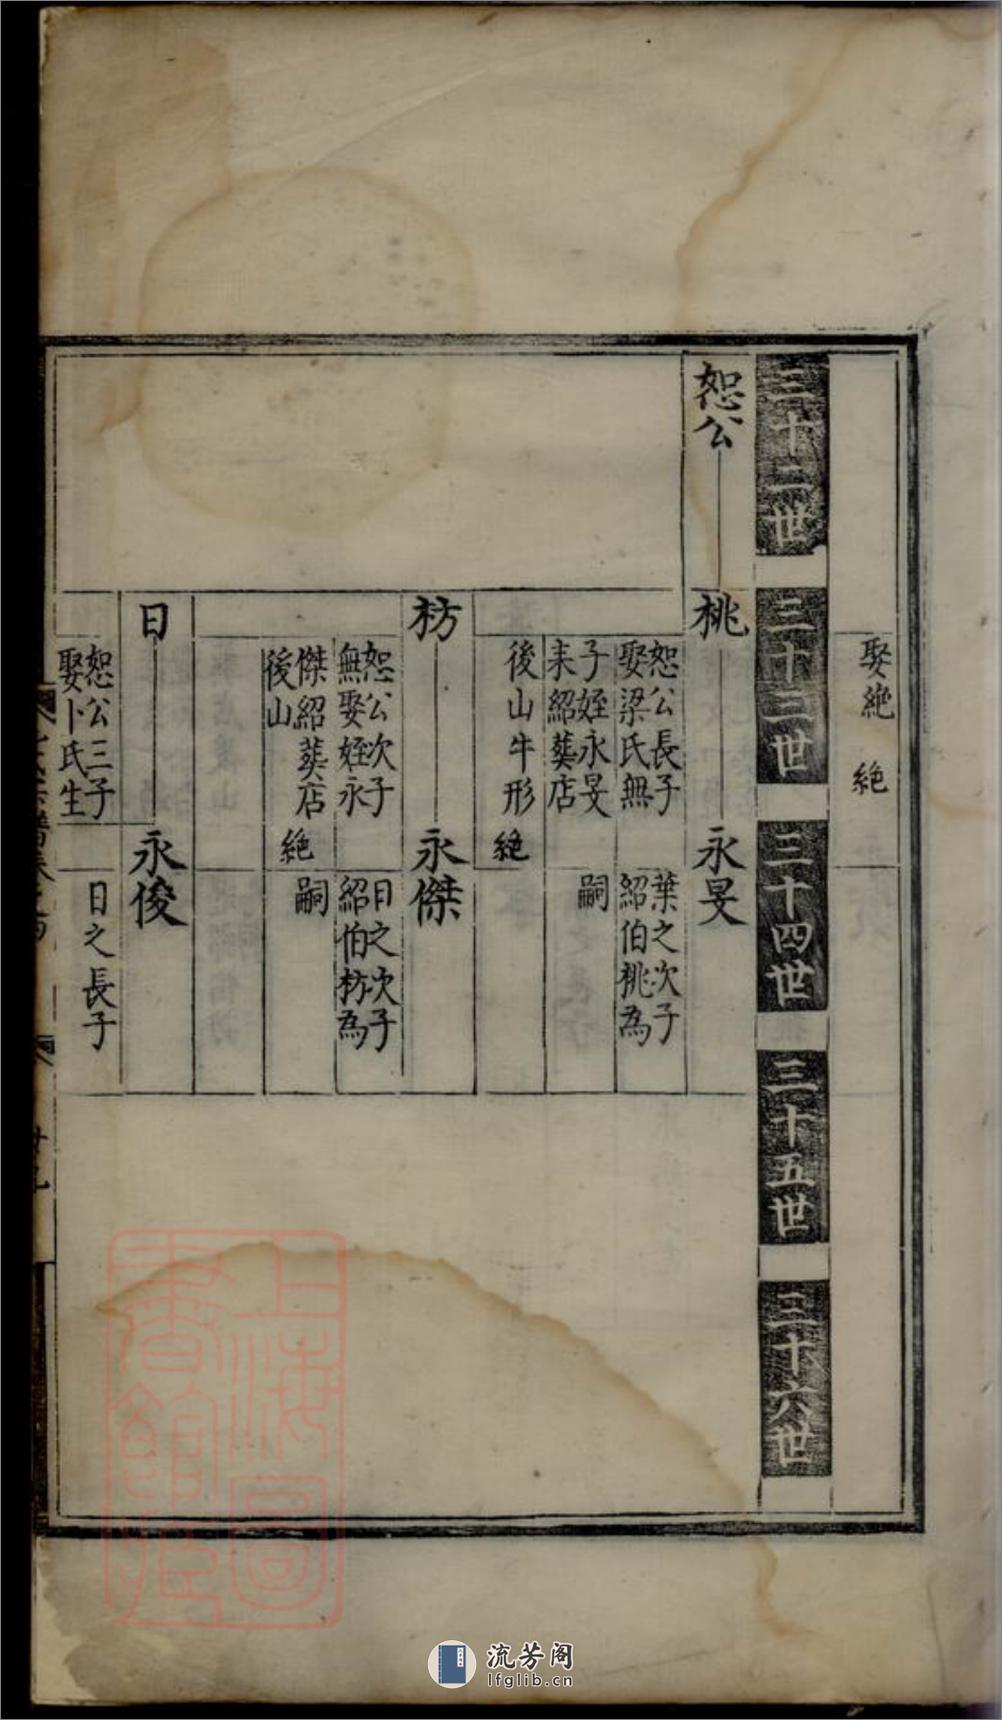 娶絶
絶
三十二世
三十三世
三十四世
三十五世
三十六世
恕公
桃
恕公長子
娶梁氏無
子姪永旻
来紹葬店
後山牛形
絶
永旻
葉之次子
紹伯桃為
嗣
枋
恕公次子
無娶姪永
傑紹葬店
後山
絶
永傑
日之次子
紹伯枋為
嗣
日
恕公三子
娶卜氏生
永俊
日之長子
上海圖
書館藏
流芳阁
lfglib.cn